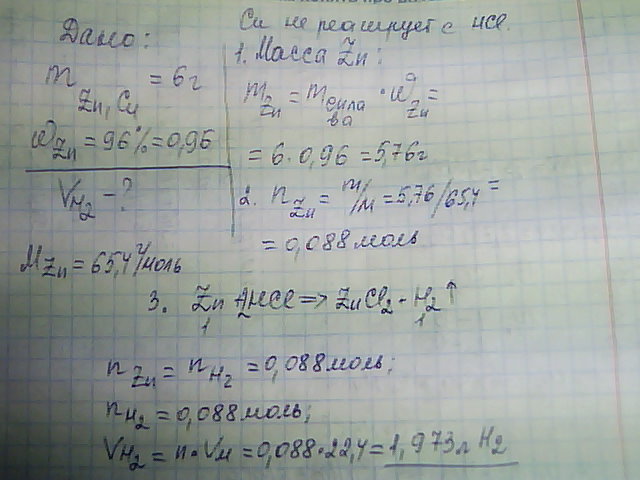 Дано:
m Zn, Cu = 6г
ωZn = 96% = 0,96
VH2 - ?
MZn = 65,4 г/моль
Cu не реагирует с HCl.
1. Масса Zn:
mZn = mсплава · ωZn =
= 6 · 0,96 = 5,76г
2. nZn = m/M = 5,76/65,4 =
= 0,088 моль
3. Zn + 2HCl => ZnCl2 - H2↑
1 1
nZn = nH2 = 0,088 моль;
nH2 = 0,088 моль;
VH2 = n · Vм = 0,088 · 22,4 = 1,973л H2